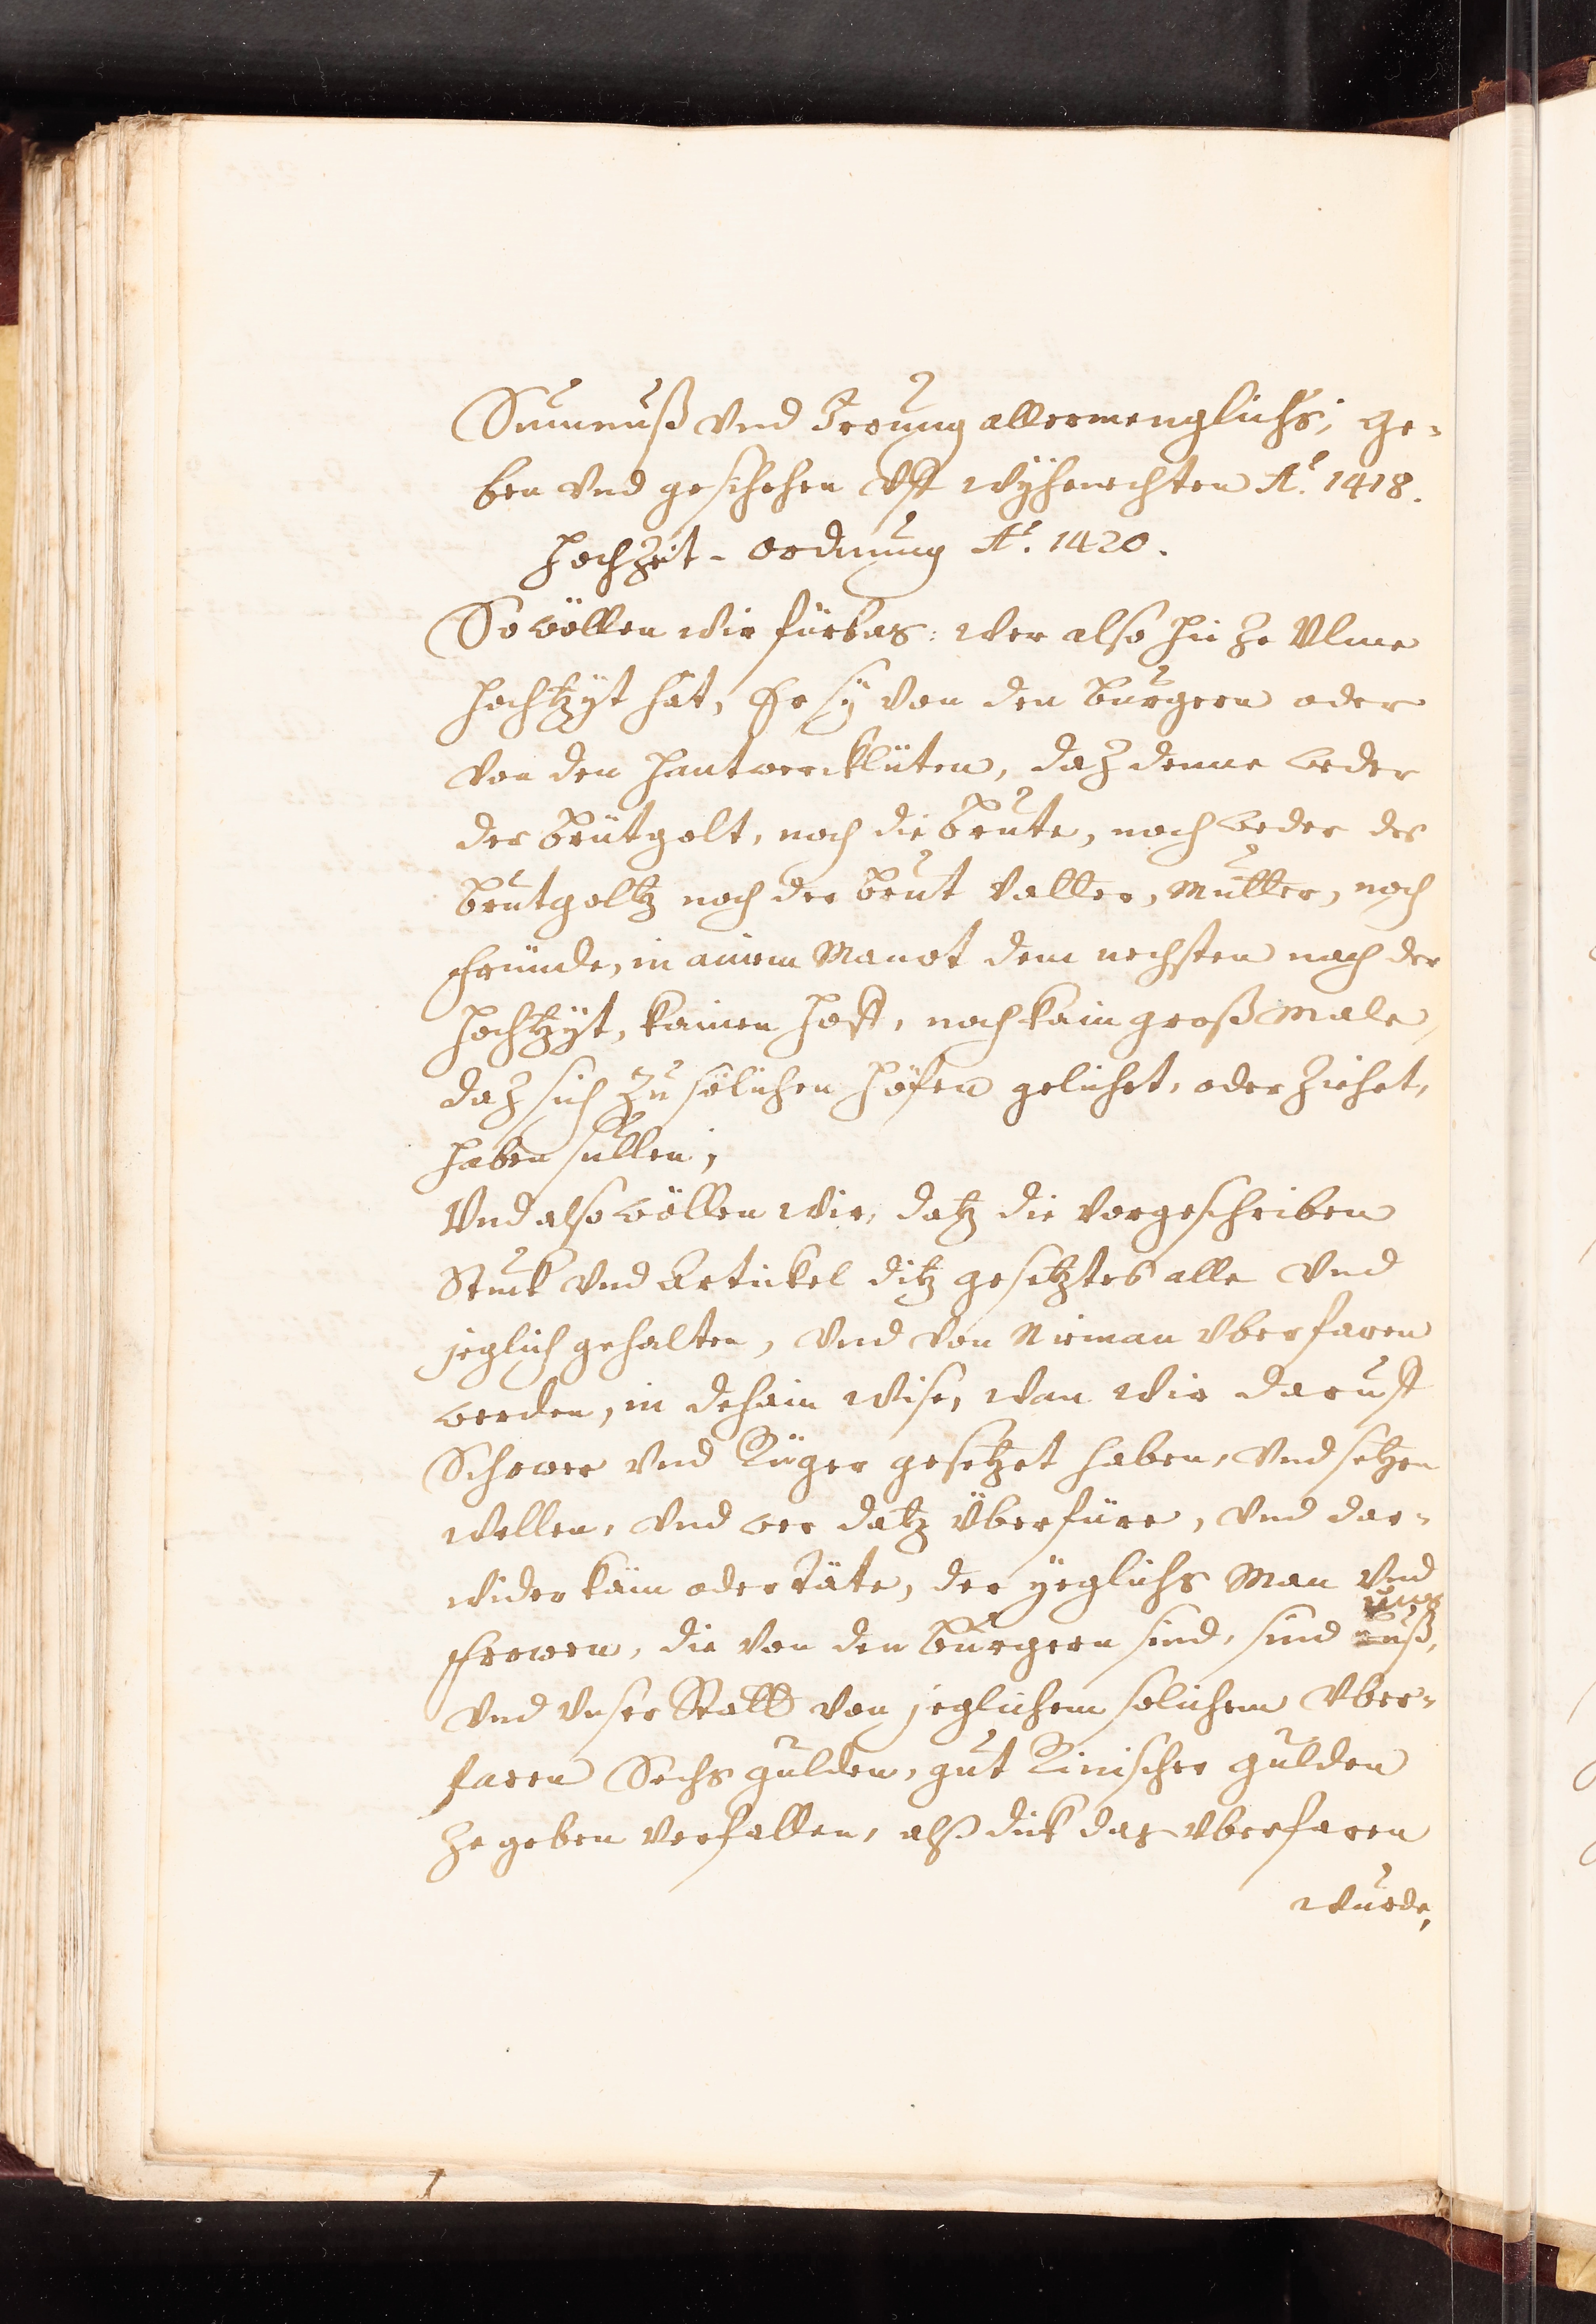 Sumnuß vnd Irrung allermenglichs; ge-
ben vnd geschehen vff wyhenechten Aº. 1418.
Hochzeit-Ordnung Aº. 1420.
So wöllen wir fürbas: wer also hie ze Ulme
hochtzyt hat, Er sy von den burgern oder
von den hantwercklüten, daz denne weder
der brütgolt, noch die brute, noch weder des
brutgoltz noch der brut Vatter, Mutter, noch
fründe, in ainem Manot dem nechsten nach der
hochtzyt, kainen hoff, noch kain groß male,
daz sich zu sölichen höfen gelichet, oder ziehet,
haben sullen;
Vnd also wöllen wir, datz die vorgeschriben
Stuck vnd Artickel ditz gesetztes alle vnd
jeglich gehalten, vnd von Nieman vberfaren
werden, in dehain wise, wan wir daruff
Schower vnd Rüger gesetzet haben, vnd setzen
wellen, vnd wer datz überfüre, vnd dar-
wider käm oder täte, der yeglichs Man vnd
Frowen, die von den burgern sind, sind uns
vnd vnser Statt von jeglichem solichem vber-
faren Sechs gulden, gut Rinischer gulden
ze geben verfallen, alß dick das vberfaren
wurde,